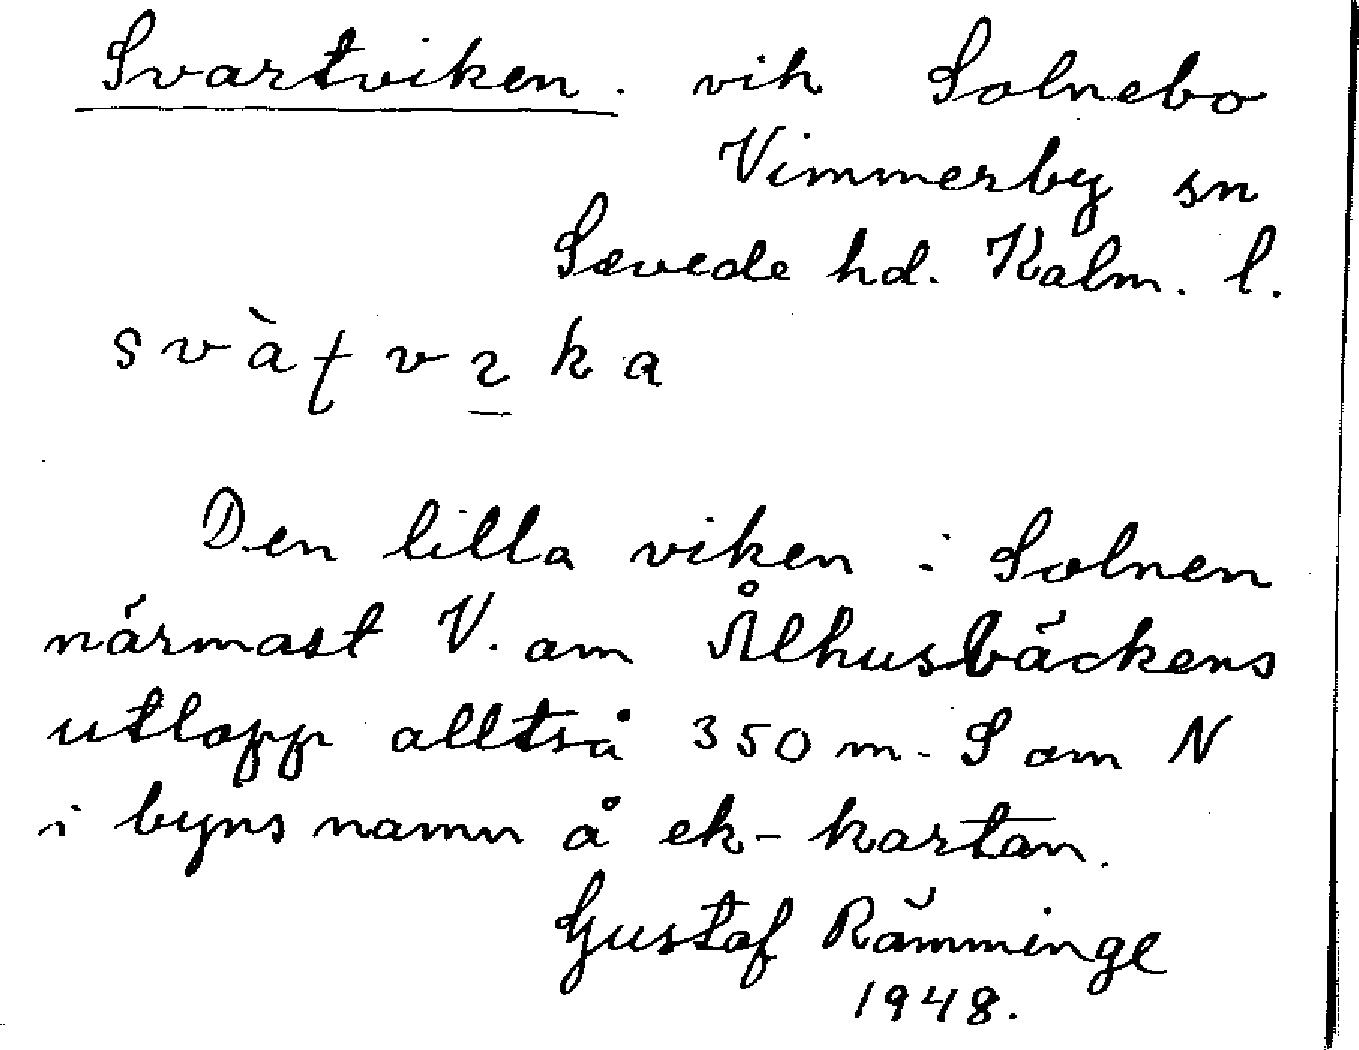 Svartviken. vik Solnebo
Vimmerby sn
Sevede hd. Kalm. l.
Den lilla viken i Solnen
närmast V. om Ålhusbäckens
utlopp alltså 350 m. S om N
i byns namn å ek-kartan.
Gustaf Rämminge
1948.